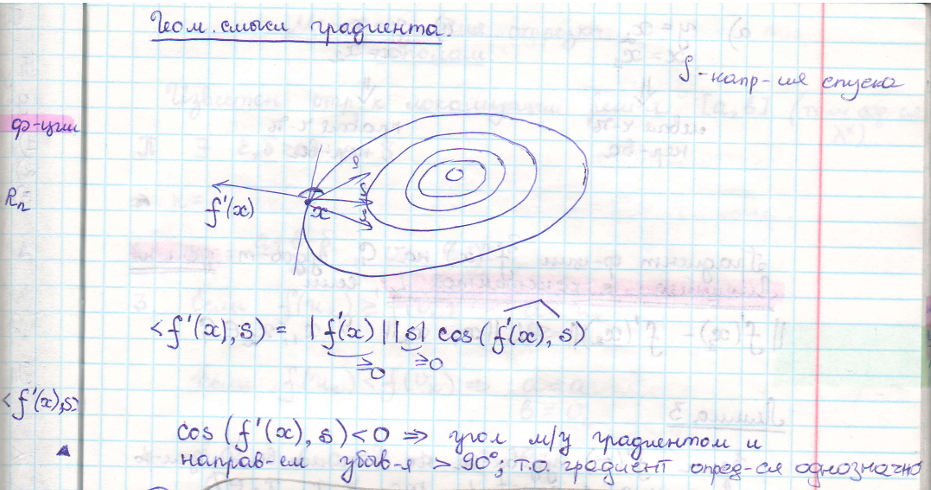 Геом. смысл градиента.
S - напр-ия спуска
ф-ции
Rn
S
f'(x)
x
<f'(x), s> = |f'(x)| |s| cos(f'(x), s)
≥0 ≥0
<f'(x), s>
cos(f'(x), s) < 0 ⇒ угол м/у градиентом и
направ-ем убыв-я > 90°; т.о. градиент опред-ся однозначно